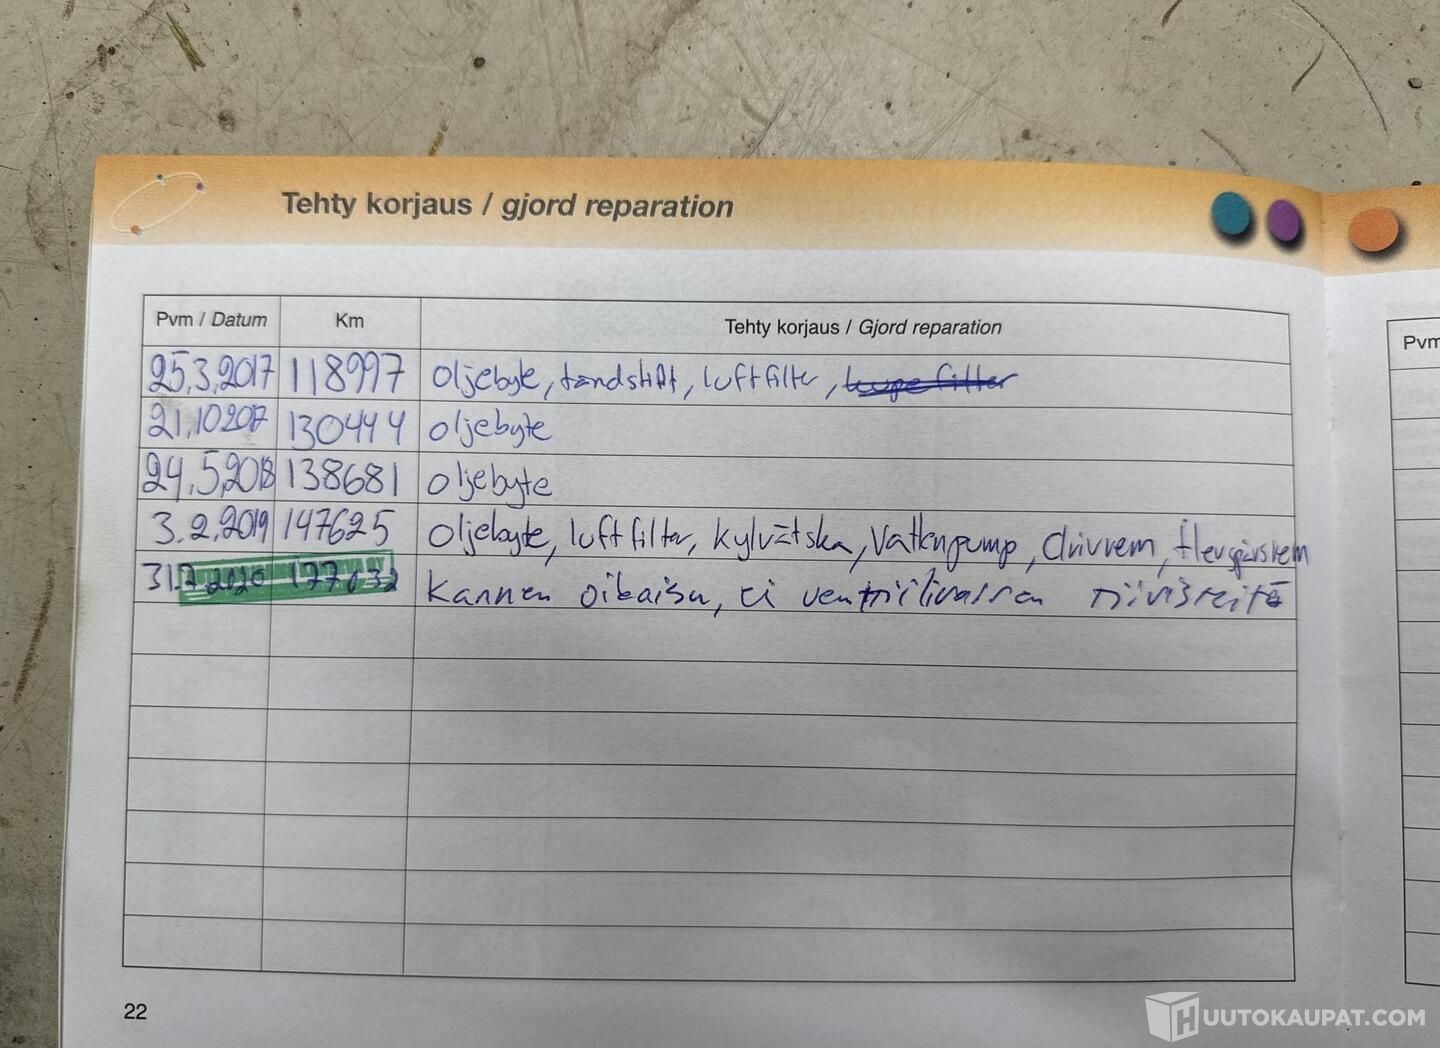 Tehty korjaus / gjord reparation
Pvm / Datum Km Tehty korjaus / Gjord reparation
25.3.2017 118997 Oljebyte, tändstift, luftfilter,
21.10 2017 130444 oljebyte
24.5.2018 138681 oljebyte
3.2.2019 147625 Oljebyte, luftfilter, kylvätska, Vattenpump, drivrem, flerspårsrem
31.7 2020 177032 Kannen oikaisu, ei venttiilivarren tiivisteitä
22
Pvm
HUUTOKAUPAT.COM